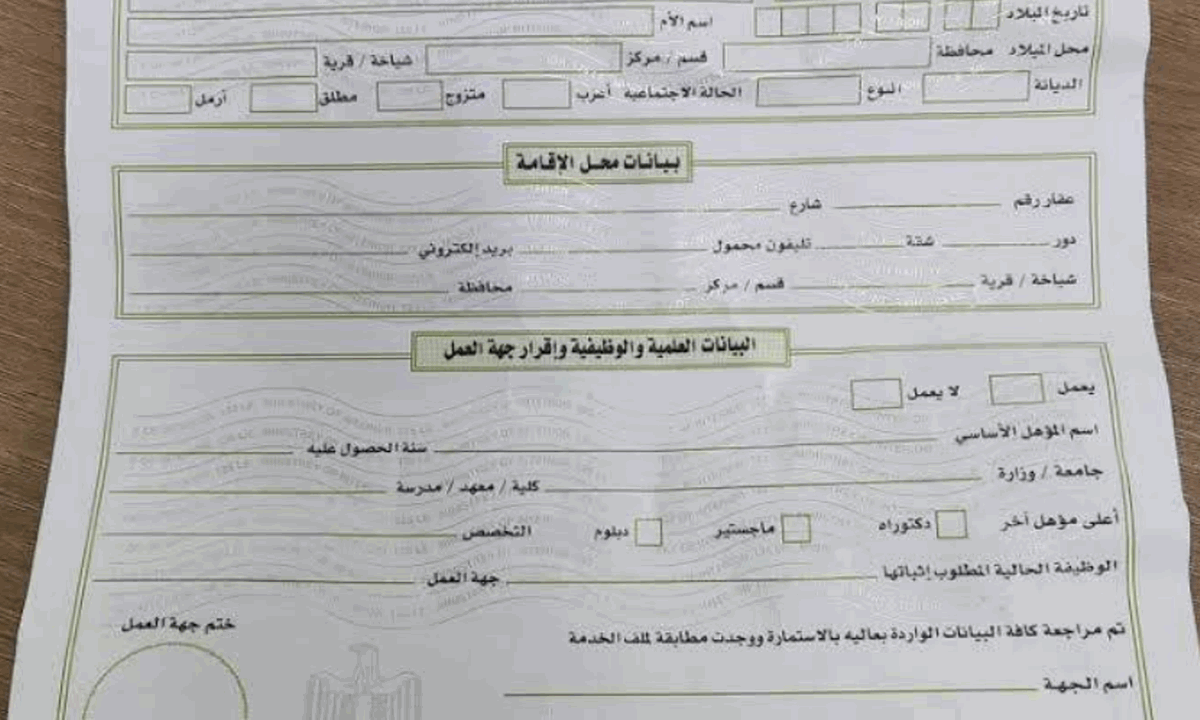 تاريخ الميلاد اسم الأم
محل الميلاد محافظة قسم / مركز شياخة / قرية
الديانة النوع الحالة الاجتماعية أعزب متزوج مطلق أرمل
بيانات محل الإقامة
عقار رقم شارع
دور شقة تليفون محمول بريد إلكتروني
شياخة / قرية قسم / مركز محافظة
البيانات العلمية والوظيفية وإقرار جهة العمل
يعمل لا يعمل
اسم المؤهل الأساسي سنة الحصول عليه
جامعة / وزارة كلية / معهد / مدرسة
أعلى مؤهل آخر دكتوراه ماجستير دبلوم التخصص
الوظيفة الحالية المطلوب إثباتها جهة العمل
ختم جهة العمل
تم مراجعة كافة البيانات الواردة بعاليه بالاستمارة ووجدت مطابقة لملف الخدمة
اسم الجهة